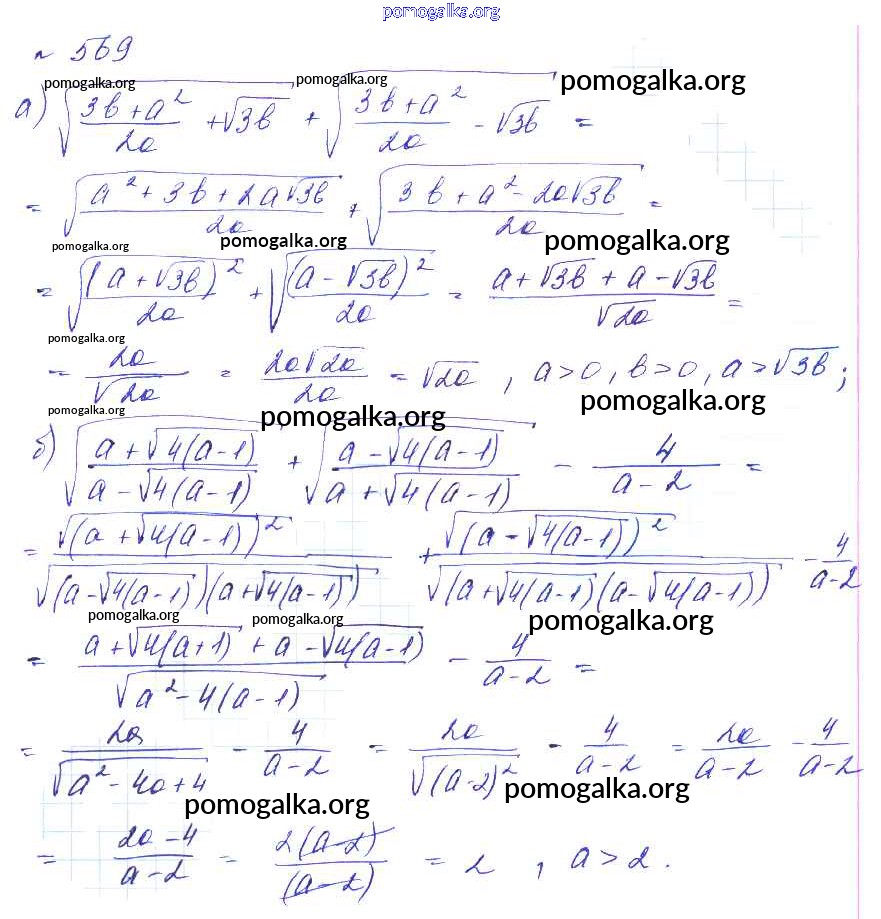 pomogalka.org
№ 569
pomogalka.org pomogalka.org pomogalka.org
а) √((3b + a²)/2a + √3b) + √((3b + a²)/2a − √3b) =
= √((a² + 3b + 2a√3b)/2a) + √((3b + a² − 2a√3b)/2a) =
pomogalka.org pomogalka.org pomogalka.org
= √((a + √3b)²/2a) + √((a − √3b)²/2a) = (a + √3b + a − √3b)/√2a =
pomogalka.org
= 2a/√2a = 2a√2a/2a = √2a , a > 0, b > 0, a > √3b ;
pomogalka.org pomogalka.org pomogalka.org
б) √((a + √4(a−1))/(a − √4(a−1))) + √((a − √4(a−1))/(a + √4(a−1))) − 4/(a−2) =
= √(a + √4(a−1))²/√(a−√4(a−1))(a+√4(a−1)) + √(a − √4(a−1))²/√(a+√4(a−1))(a−√4(a−1)) − 4/(a−2)
pomogalka.org pomogalka.org
= (a + √4(a+1) + a − √4(a−1))/√(a² − 4(a−1)) − 4/(a−2) =
= 2a/√(a² − 4a + 4) − 4/(a−2) = 2a/√(a−2)² − 4/(a−2) = 2a/(a−2) − 4/(a−2)
pomogalka.org pomogalka.org
= (2a − 4)/(a−2) = 2(a−2)/(a−2) = 2 , a > 2 .